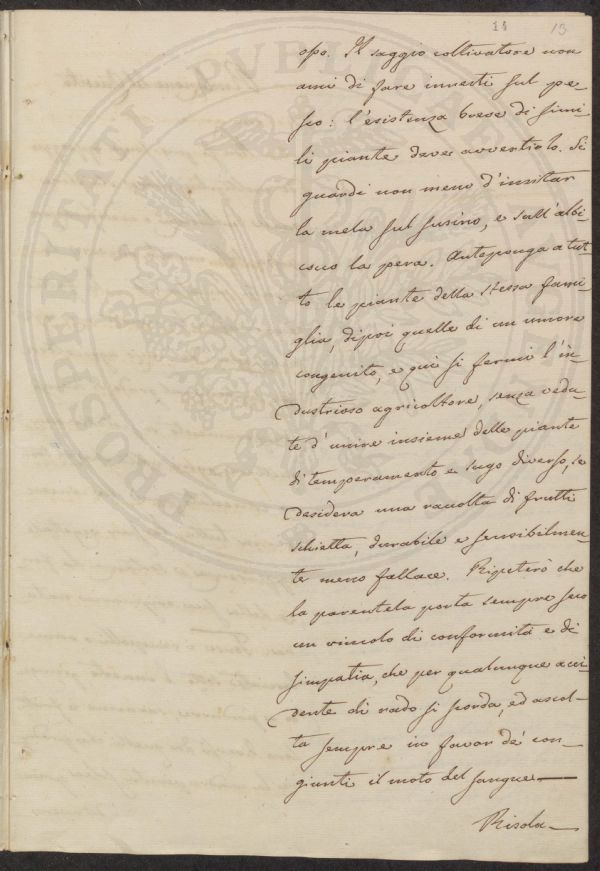 11 13
opo. Il saggio coltivatore non
ami di fare innesti sul pe-
sco: l'esistenza breve di simi-
li piante deve avvertirlo. Si
guardi non meno d'insitar
la mela sul susino, e sull'albi-
cocco la pera. Anteponga a tut-
to le piante della stessa fami-
glia, dipoi quelle di un umore
congenito, e quì si fermi l'in-
dustrioso agricoltore, senza vedu-
te d'unire insieme delle piante
di temperamento e sugo diverso, se
desidera una raccolta di frutti
schietta, durabile e sensibilmen-
te meno fallace. Ripeterò che
la parentela porta sempre seco
un vincolo di conformità e di
simpatia, che per qualunque acci-
dente di rado si scorda, ed ascol-
ta sempre in favor de' con-
giunti il moto del sangue —
Risola-
PROSPERITATI PVBLICAE